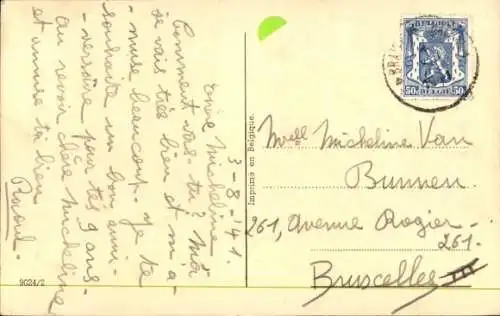 3-8-'41.
Chère Micheline
Comment vas-tu? Moi
je vais très bien et m'a-
muse beaucoup. Je te
souhaite un bon anni-
versaire pour tes 9 ans.
Au revoir chère Micheline
et amuse-toi bien
Imprimé en Belgique.
9G24/2
BELGIE-BELGIQUE
50 50
Mell Micheline Van
Bunnen
261, Avenue Rogier
261.
Bruxelles III